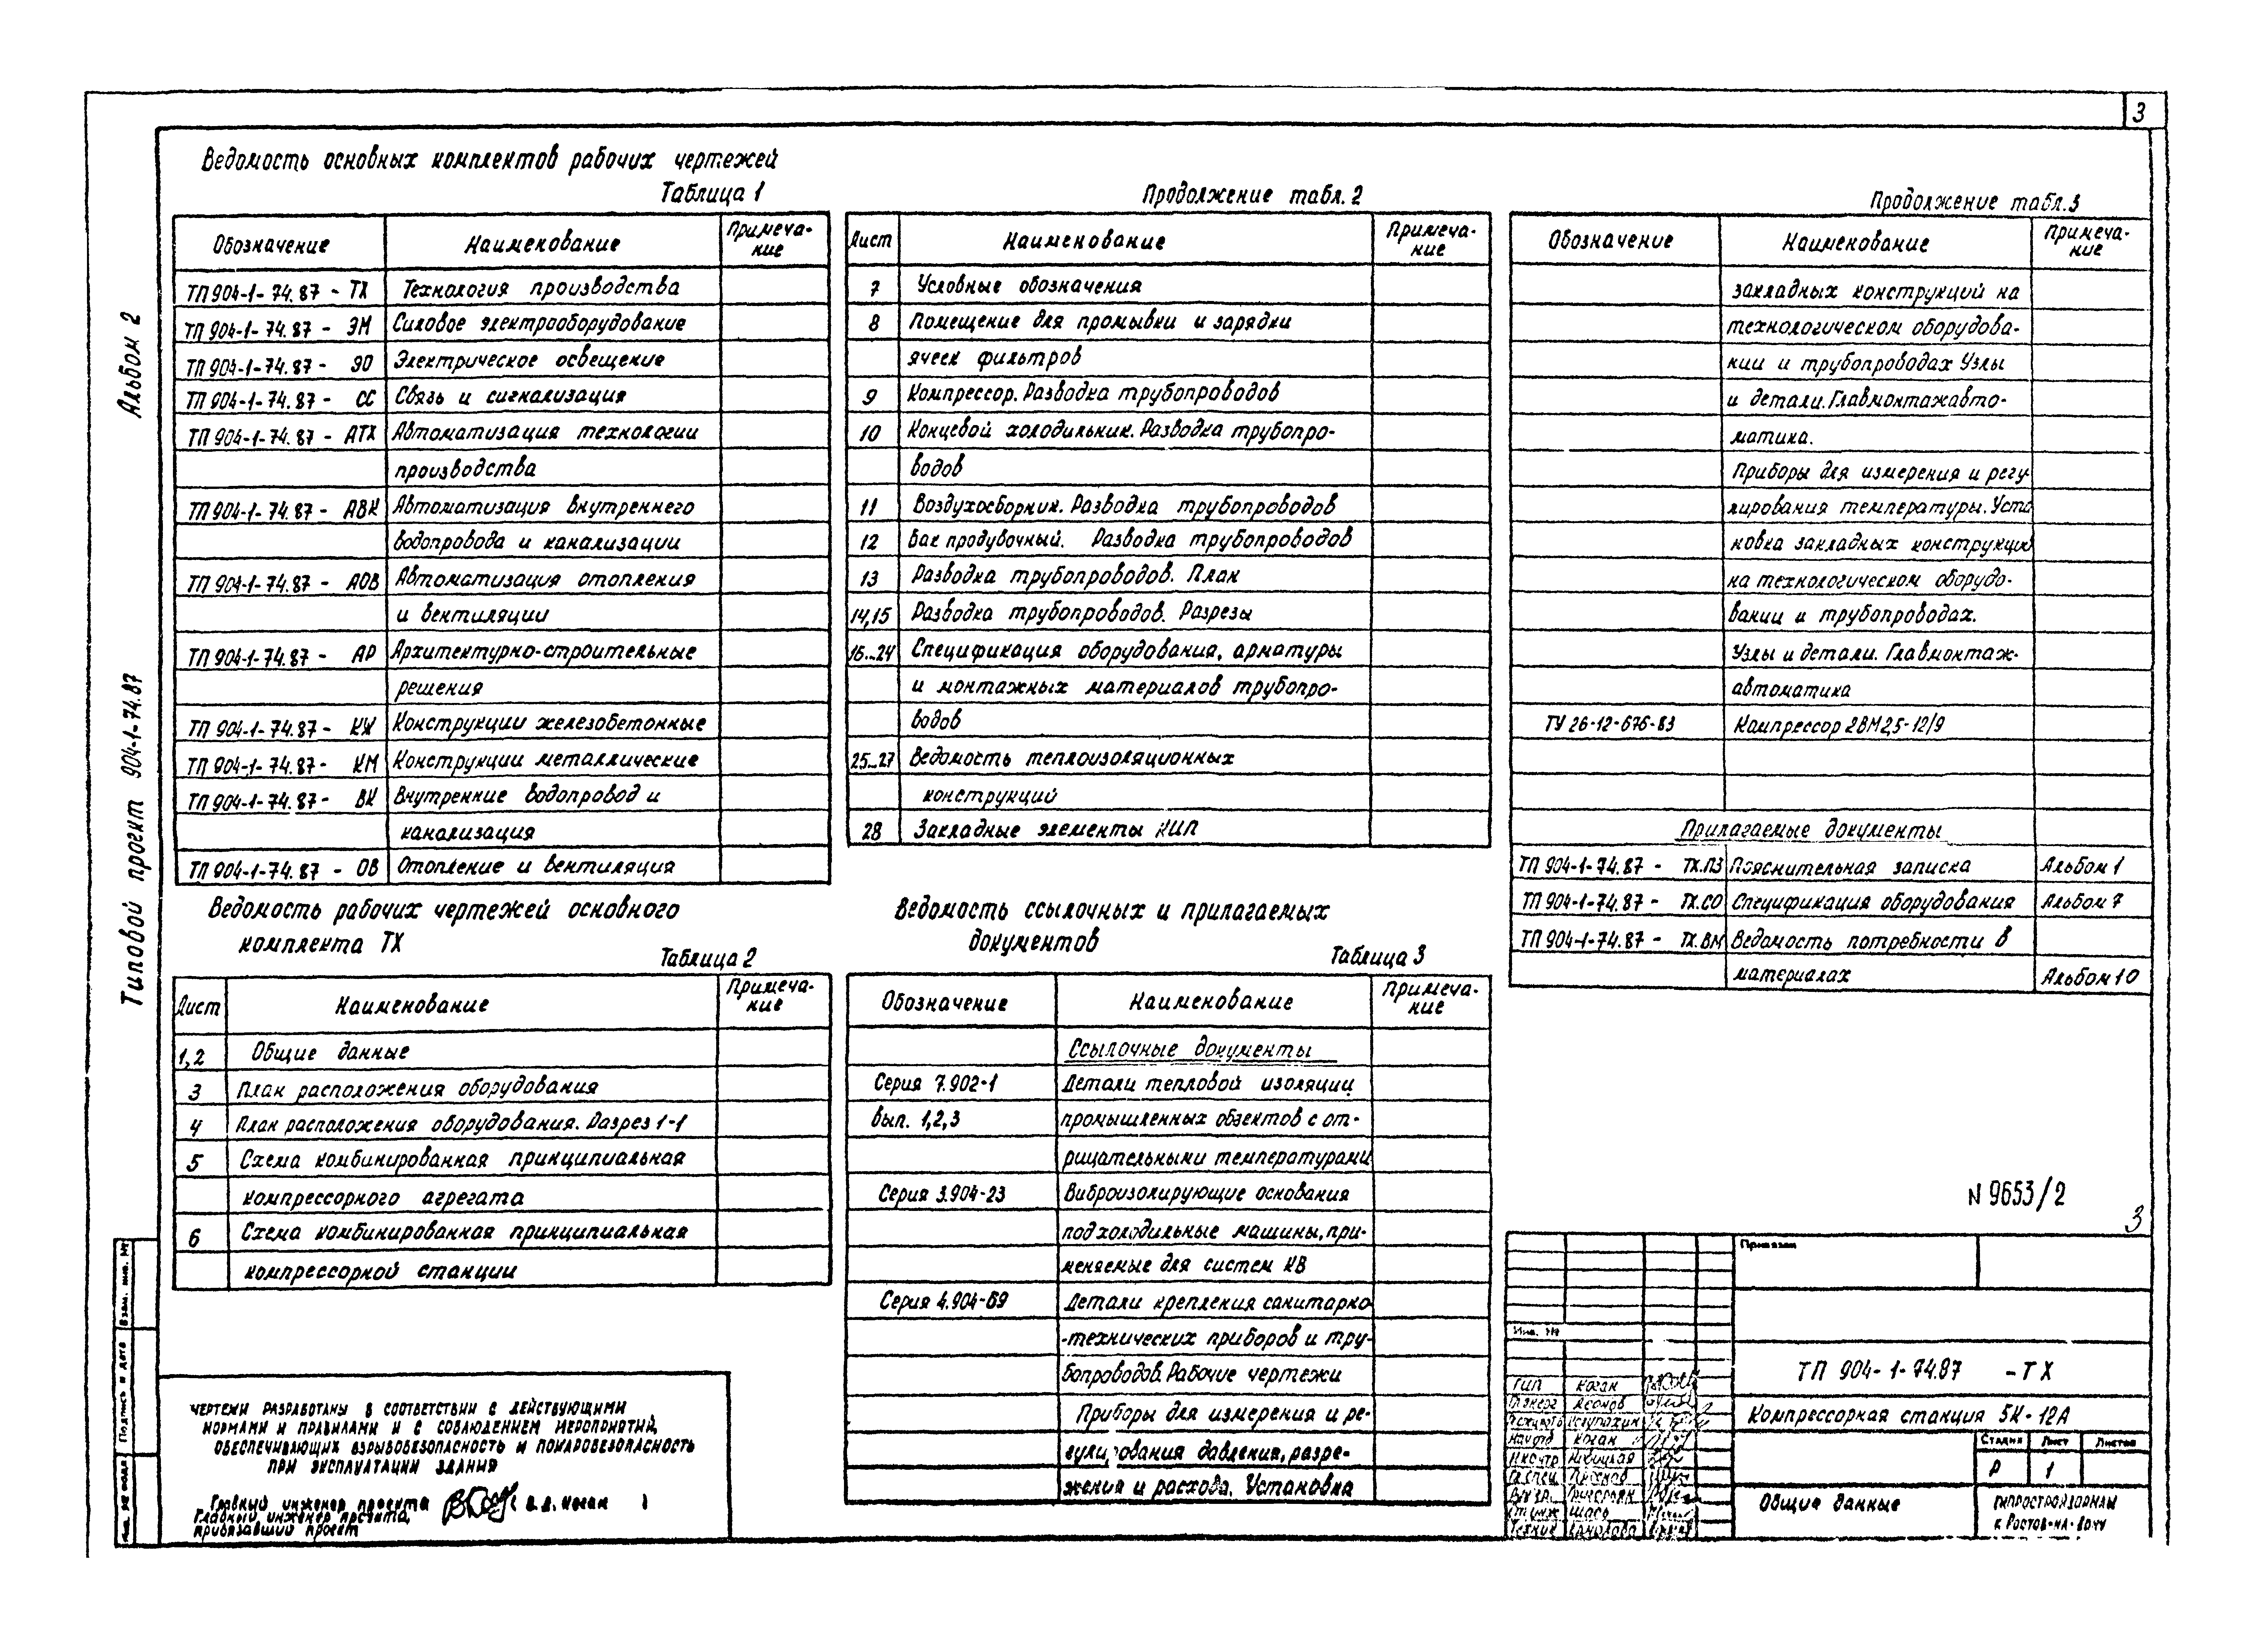 3
Альбом 2
Типовой проект 904-1-74.87
Ведомость основных комплектов рабочих чертежей
Таблица 1
Обозначение Наименование Примеча-
ние
ТП 904-1-74.87 - ТХ Технология производства
ТП 904-1-74.87 - ЭМ Силовое электрооборудование
ТП 904-1-74.87 - ЭО Электрическое освещение
ТП 904-1-74.87 - СС Связь и сигнализация
ТП 904-1-74.87 - АТХ Автоматизация технологии
производства
ТП 904-1-74.87 - АВК Автоматизация внутреннего
водопровода и канализации
ТП 904-1-74.87 - АОВ Автоматизация отопления
и вентиляции
ТП 904-1-74.87 - АР Архитектурно-строительные
решения
ТП 904-1-74.87 - КЖ Конструкции железобетонные
ТП 904-1-74.87 - КМ Конструкции металлические
ТП 904-1-74.87 - ВК Внутренние водопровод и
канализация
ТП 904-1-74.87 - ОВ Отопление и вентиляция
Ведомость рабочих чертежей основного
комплекта ТХ
Таблица 2
Лист Наименование Примеча-
ние
1,2 Общие данные
3 План расположения оборудования
4 План расположения оборудования. Разрез 1-1
5 Схема комбинированная принципиальная
компрессорного агрегата
6 Схема комбинированная принципиальная
компрессорной станции
Чертежи разработаны в соответствии с действующими
нормами и правилами и с соблюдением мероприятий,
обеспечивающих взрывобезопасность и пожаробезопасность
при эксплуатации здания
Главный инженер проекта В.Д. Коган
Главный инженер проекта,
привязавший проект
Взам. инв. №
Подпись и дата
Инв. № подл
Продолжение табл. 2
Лист Наименование Примеча-
ние
7 Условные обозначения
8 Помещение для промывки и зарядки
ячеек фильтров
9 Компрессор. Разводка трубопроводов
10 Концевой холодильник. Разводка трубопро-
водов
11 Воздухосборник. Разводка трубопроводов
12 Бак продувочный. Разводка трубопроводов
13 Разводка трубопроводов. План
14,15 Разводка трубопроводов. Разрезы
16...24 Спецификация оборудования, арматуры
и монтажных материалов трубопро-
водов
25...27 Ведомость теплоизоляционных
конструкций
28 Закладные элементы КИП
Ведомость ссылочных и прилагаемых
документов
Таблица 3
Обозначение Наименование Примеча-
ние
Ссылочные документы
Серия 7.902-1 Детали тепловой изоляции
вып. 1,2,3 промышленных объектов с от-
рицательными температурами
Серия 3.904-23 Виброизолирующие основания
под холодильные машины, при-
меняемые для систем КВ
Серия 4.904-69 Детали крепления санитарно
-технических приборов и тру-
бопроводов. Рабочие чертежи
Приборы для измерения и ре-
гулирования давления, разре-
жения и расхода. Установка
Продолжение табл. 3
Обозначение Наименование Примеча-
ние
закладных конструкций на
технологическом оборудова-
нии и трубопроводах Узлы
и детали. Главмонтажавто-
матика.
Приборы для измерения и регу
лирования температуры. Уста
новка закладных конструкций
на технологическом оборудо-
вании и трубопроводах.
Узлы и детали. Главмонтаж-
автоматика
ТУ 26-12-676-83 Компрессор 2ВМ2,5-12/9
Прилагаемые документы
ТП 904-1-74.87 - ТХ.ПЗ Пояснительная записка Альбом 1
ТП 904-1-74.87 - ТХ.СО Спецификация оборудования Альбом 7
ТП 904-1-74.87 - ТХ.ВМ Ведомость потребности в
материалах Альбом 10
N 9653/2
3
Привязан
Инв. №
ТП 904-1-74.87 -ТХ
ГИП Коган
Нач отд Коган
Н контр
Компрессорная станция 5К-12А
Стадия Лист Листов
Р 1
Общие данные
Гипростройдормаш
г. Ростов-на-Дону